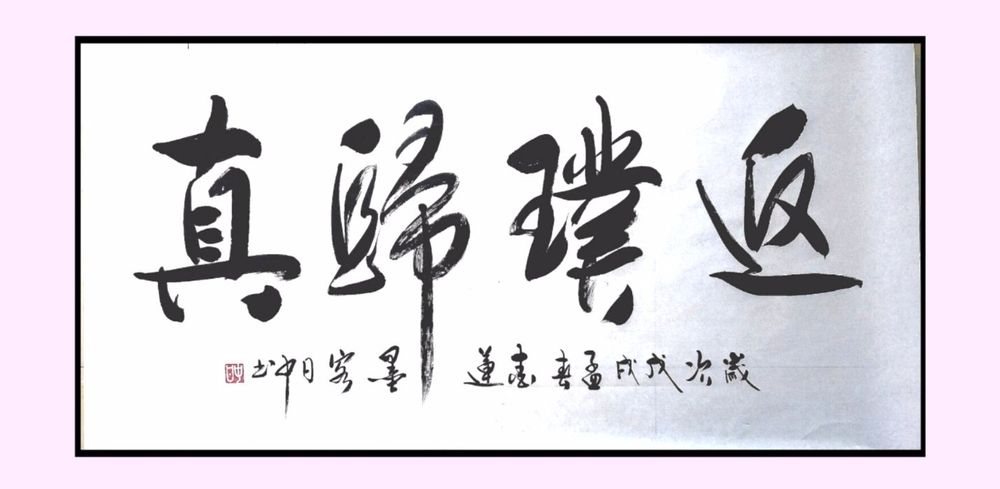 返璞歸真
歲次戊戌孟春書蓮 墨客月中书